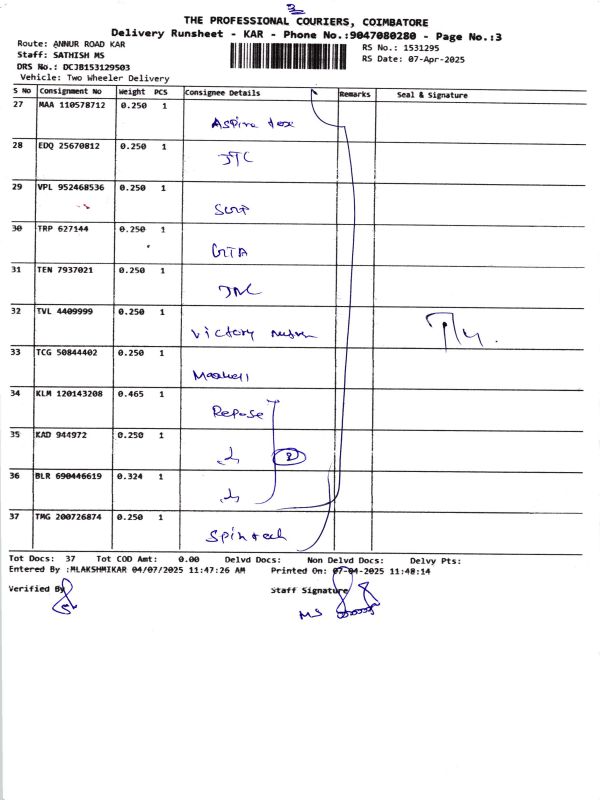 3
THE PROFESSIONAL COURIERS, COIMBATORE
Delivery Runsheet - KAR - Phone No.:9047080280 - Page No.:3
Route: ANNUR ROAD KAR
RS No.: 1531295
Staff: SATHISH MS
RS Date: 07-Apr-2025
DRS No.: DCJB153129503
Vehicle: Two Wheeler Delivery
S No Consignment No Weight PCS Consignee Details Remarks Seal & Signature
27 MAA 110578712 0.250 1
Aspire tex
28 EDQ 25670812 0.250 1
JTC
29 VPL 952468536 0.250 1
30 TRP 627144 0.250 1
GTA
31 TEN 7937021 0.250 1
32 TVL 4409999 0.250 1
Victory
33 TCG 50844402 0.250 1
34 KLM 120143208 0.465 1
Repose
35 KAD 944972 0.250 1
2
36 BLR 690446619 0.324 1
37 TMG 200726874 0.250 1
Spintech
Tot Docs: 37 Tot COD Amt: 0.00 Delvd Docs: Non Delvd Docs: Delvy Pts:
Entered By :MLAKSHMIKAR 04/07/2025 11:47:26 AM Printed On: 07-04-2025 11:48:14
Verified By
Staff Signature
MS